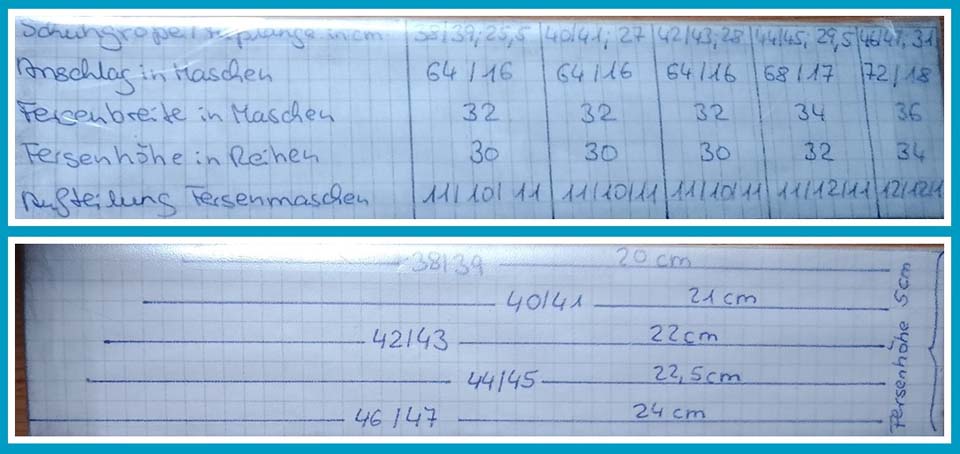 Schuhgröße / Fußlänge in cm 38/39; 25,5 40/41; 27 42/43; 28 44/45; 29,5 46/47; 31
Anschlag in Maschen 64/16 64/16 64/16 68/17 72/18
Fersenbreite in Maschen 32 32 32 34 36
Fersenhöhe in Reihen 30 30 30 32 34
Aufteilung Fersenmaschen 11/10/11 11/10/11 11/10/11 11/12/11 12/12/1
38/39 20 cm
40/41 21 cm
42/43 22 cm
44/45 22,5 cm
46/47 24 cm
Fersenhöhe 5 cm